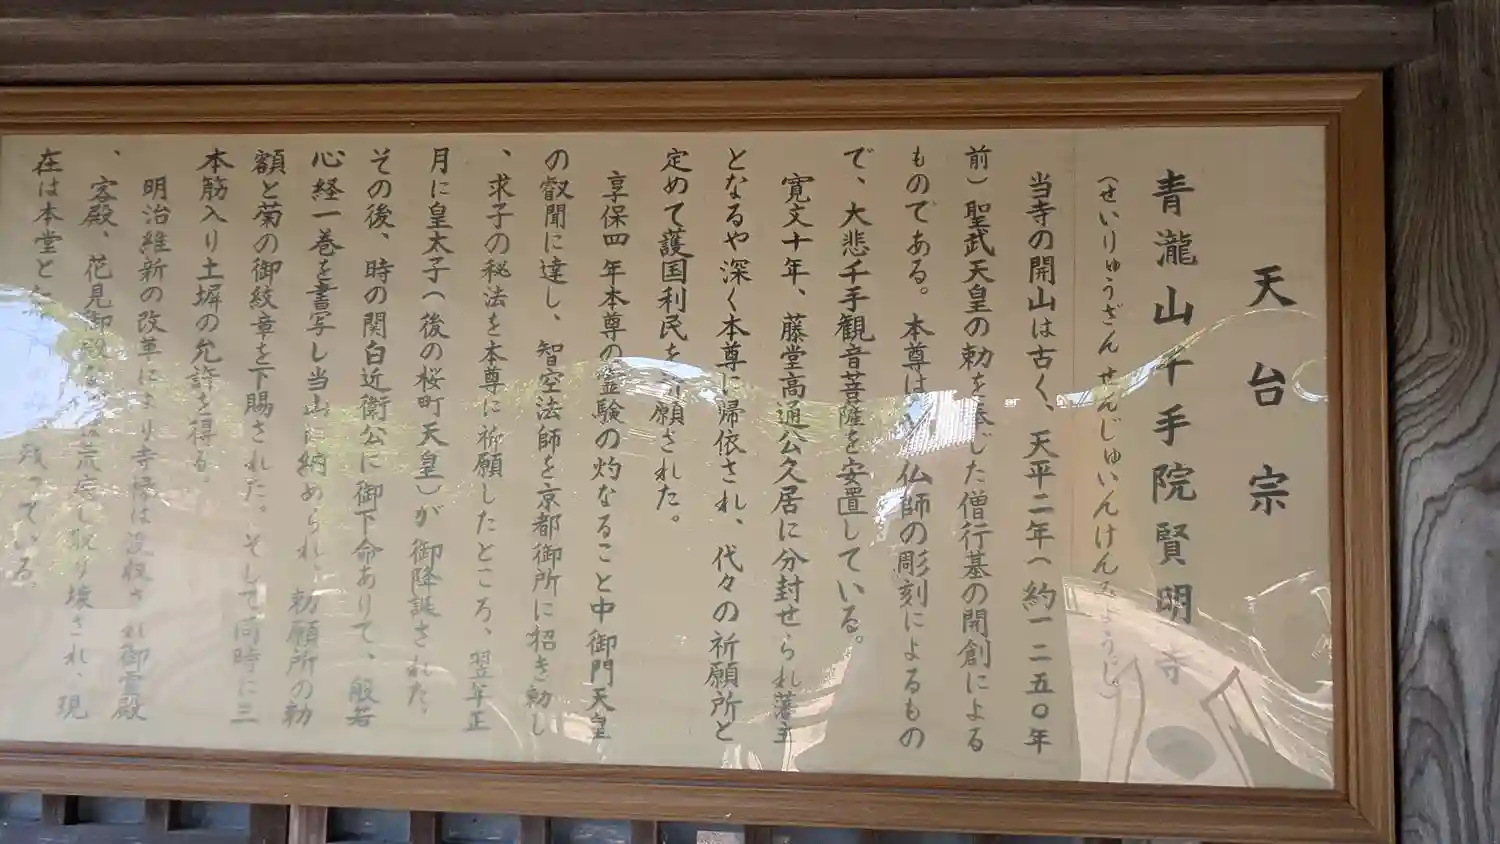 天台宗
青瀧山千手院賢明寺
(せいりゅうざんせんじゅいんけんみょうじ)
当寺の開山は古く、天平二年(約一二五〇年
前)聖武天皇の勅を奉じた僧行基の開創による
ものである。本尊は 仏師の彫刻によるもの
で、大悲千手観音菩薩を安置している。
寛文十年、藤堂高通公久居に分封せられ藩主
となるや深く本尊に帰依され、代々の祈願所と
定めて護国利民を祈願された。
享保四年本尊の霊験の灼なること中御門天皇
の叡聞に達し、智空法師を京都御所に招き勅し
、求子の秘法を本尊に祈願したところ、翌年正
月に皇太子(後の桜町天皇)が御降誕された。
その後、時の関白近衛公に御下命ありて、般若
心経一巻を書写し当山に納められ、勅願所の勅
額と菊の御紋章を下賜された。そして同時に三
本筋入り土塀の允許を得る。
明治維新の改革により寺禄は没収され御霊殿
、客殿、花見御殿などは荒廃し取り壊され、現
在は本堂と 残っている。